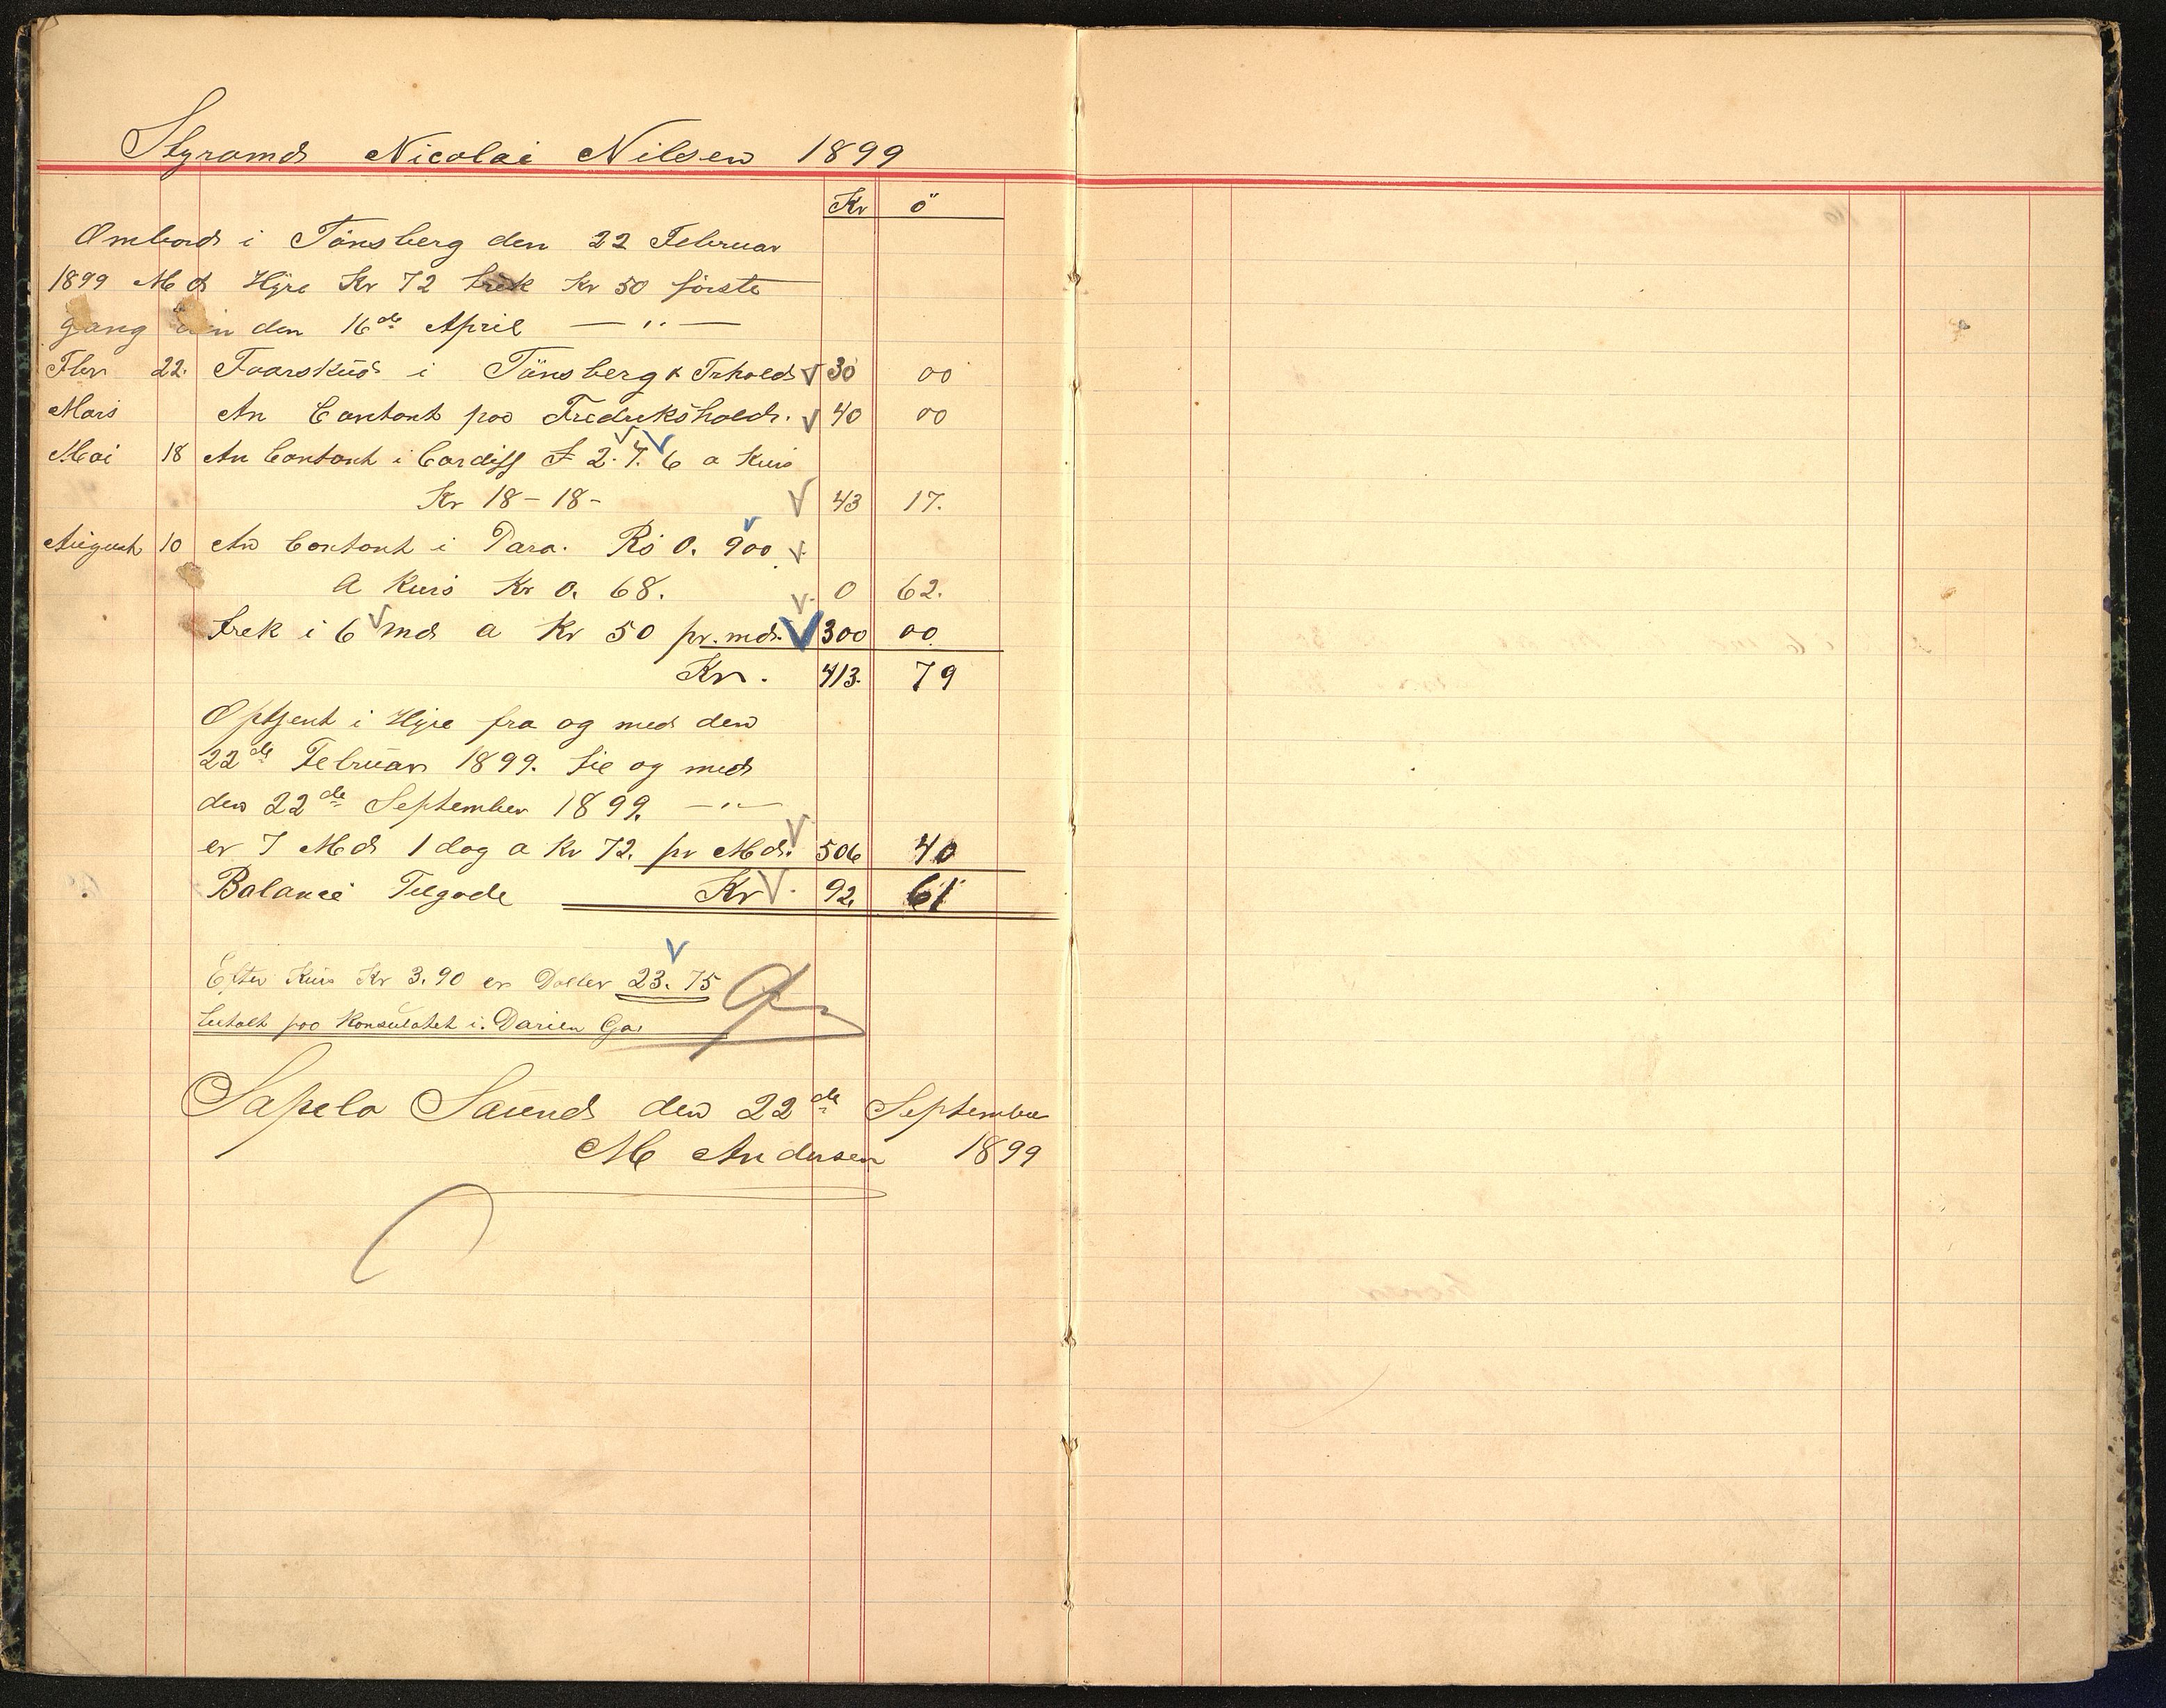 Styrmand Nicolai Nilsen 1899
Kr ö
Ombord i Tönsberg den 22 Februar
1899 Md Hyre Kr 72 trek Kr 50 förste
gang den 16de April — " —
Fbr 22. Foorskud i Tönsberg & Frhald 30 00
Mars An Contant poa Fredrikshald. 40 00
Mai 18 An Contant i Cardiff £ 2. 7. 6 a Kurs
Kr 18-18- 43 17.
August 10 An Contant i Para. Rs 0. 900
a Kurs Kr 0. 68. 0 62.
trek i 6 md a Kr 50 pr. md. 300 00
Kr. 413. 79
Optjent i Hyre fra og med den
22de Februar 1899. til og med
den 22de September 1899. — " —
er 7 Md 1 dag a Kr 72. pr Md. 506 40
Balance Tilgode Kr. 92. 61
Efter Kurs Kr 3.90 er Doller 23. 75
betalt poa Konsulatet i. Darien Ga.
Sapelo Saund den 22de September
M Andersen 1899